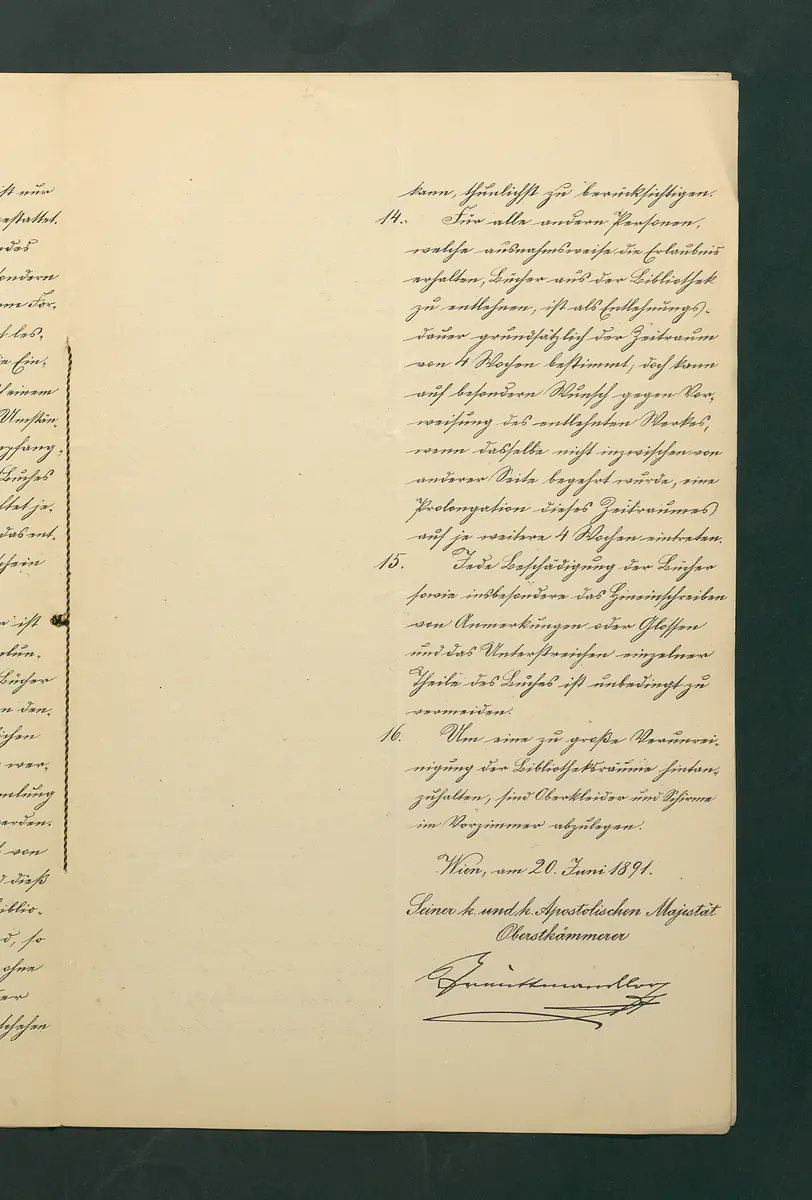 ist nur
gestattet.
ondern
em For-
les-
Ein-
einem
Umstän-
Buches
das ent-
schein
ist
Bücher
den-
wer-
erden.
von
dieß
so
ohne
kann, thunlichst zu berücksichtigen.
14. Für alle andern Personen,
welche ausnahmsweise die Erlaubnis
erhalten, Bücher aus der Bibliothek
zu entlehnen, ist als Entlehnungs-
dauer grundsätzlich der Zeitraum
von 4 Wochen bestimmt, doch kann
auf besondern Wunsch gegen Vor-
weisung des entlehnten Werkes,
wenn dasselbe nicht inzwischen von
anderer Seite begehrt wurde, eine
Prolongation dieses Zeitraumes
auf je weitere 4 Wochen eintreten.
15. Jede Beschädigung der Bücher
sowie insbesondere das Hineinschreiben
von Anmerkungen oder Glossen
und das Unterstreichen einzelner
Theile des Buches ist unbedingt zu
vermeiden.
16. Um eine zu große Verunrei-
nigung der Bibliotheksräume hintan-
zuhalten, sind Oberkleider und Schirme
im Vorzimmer abzulegen.
Wien, am 20. Juni 1891.
Seiner k. und k. Apostolischen Majestät
Oberstkämmerer
Trauttmansdorff